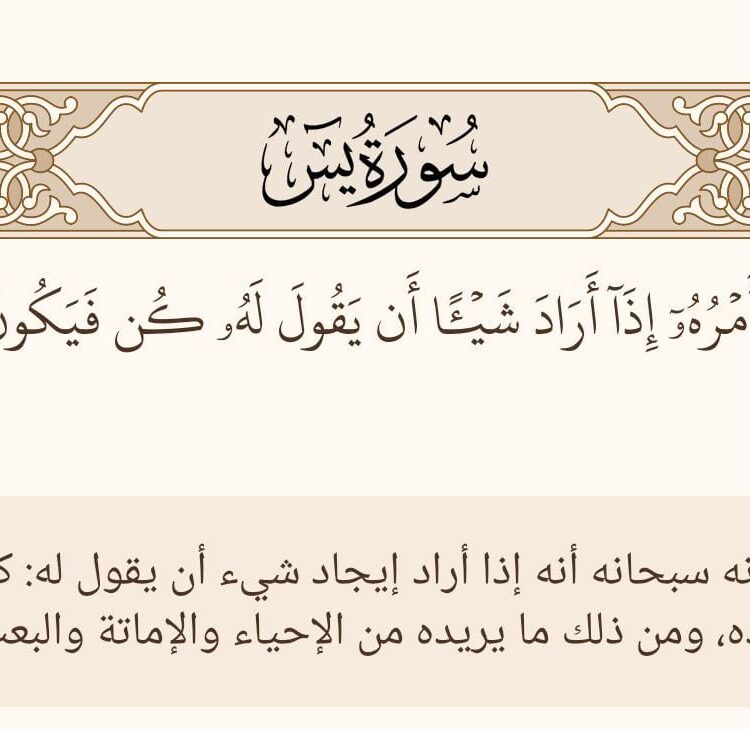 سُورَةُ يسٓ
أَمۡرُهُۥٓ إِذَآ أَرَادَ شَيۡـًٔا أَن يَقُولَ لَهُۥ كُن فَيَكُونُ
سبحانه أنه إذا أراد إيجاد شيء أن يقول له:
ومن ذلك ما يريده من الإحياء والإماتة